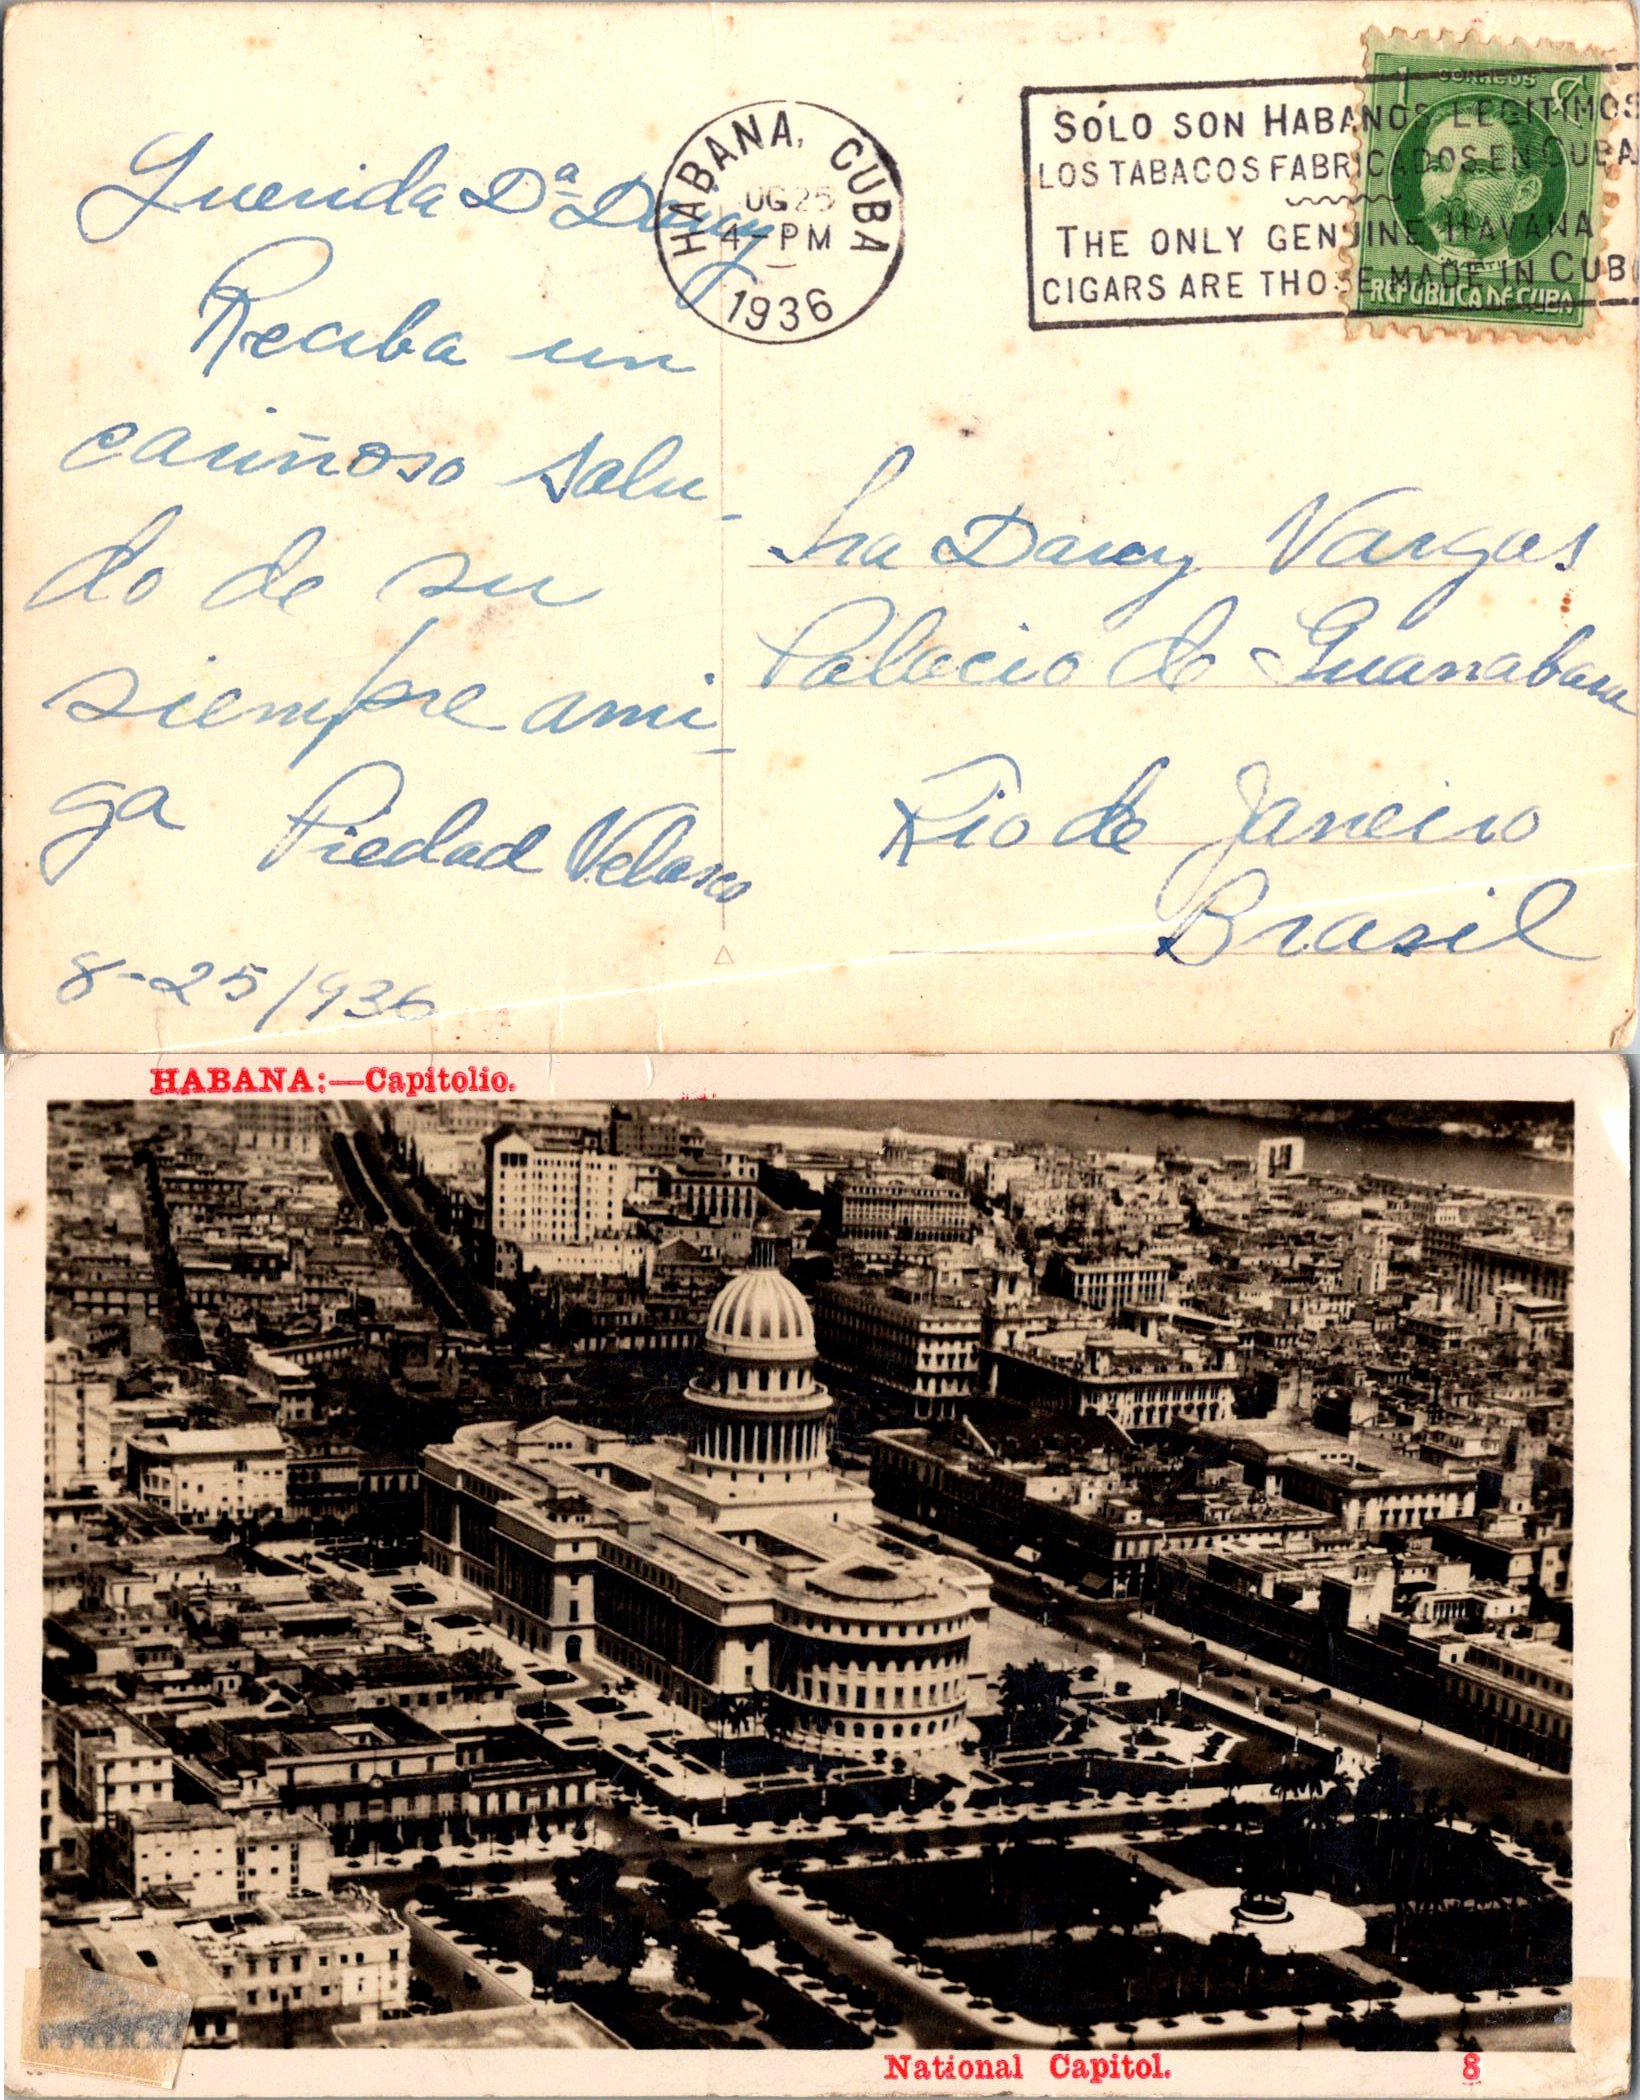 Querida Dª Darcy
Reciba un
cariñoso salu-
do de su
siempre ami-
ga Piedad Velasco
8-25/936
HABANA, CUBA
UG 25
4-PM
1936
SÓLO SON HABANOS LEGITIMOS
LOS TABACOS FABRICADOS EN CUBA
THE ONLY GENUINE HAVANA
CIGARS ARE THOSE MADE IN CUB
1 CORREOS C
MARTI
REPUBLICA DE CUBA
Sra Darcy Vargas
Palacio de Guanabara
Rio de Janeiro
Brasil
HABANA:—Capitolio.
National Capitol. 8